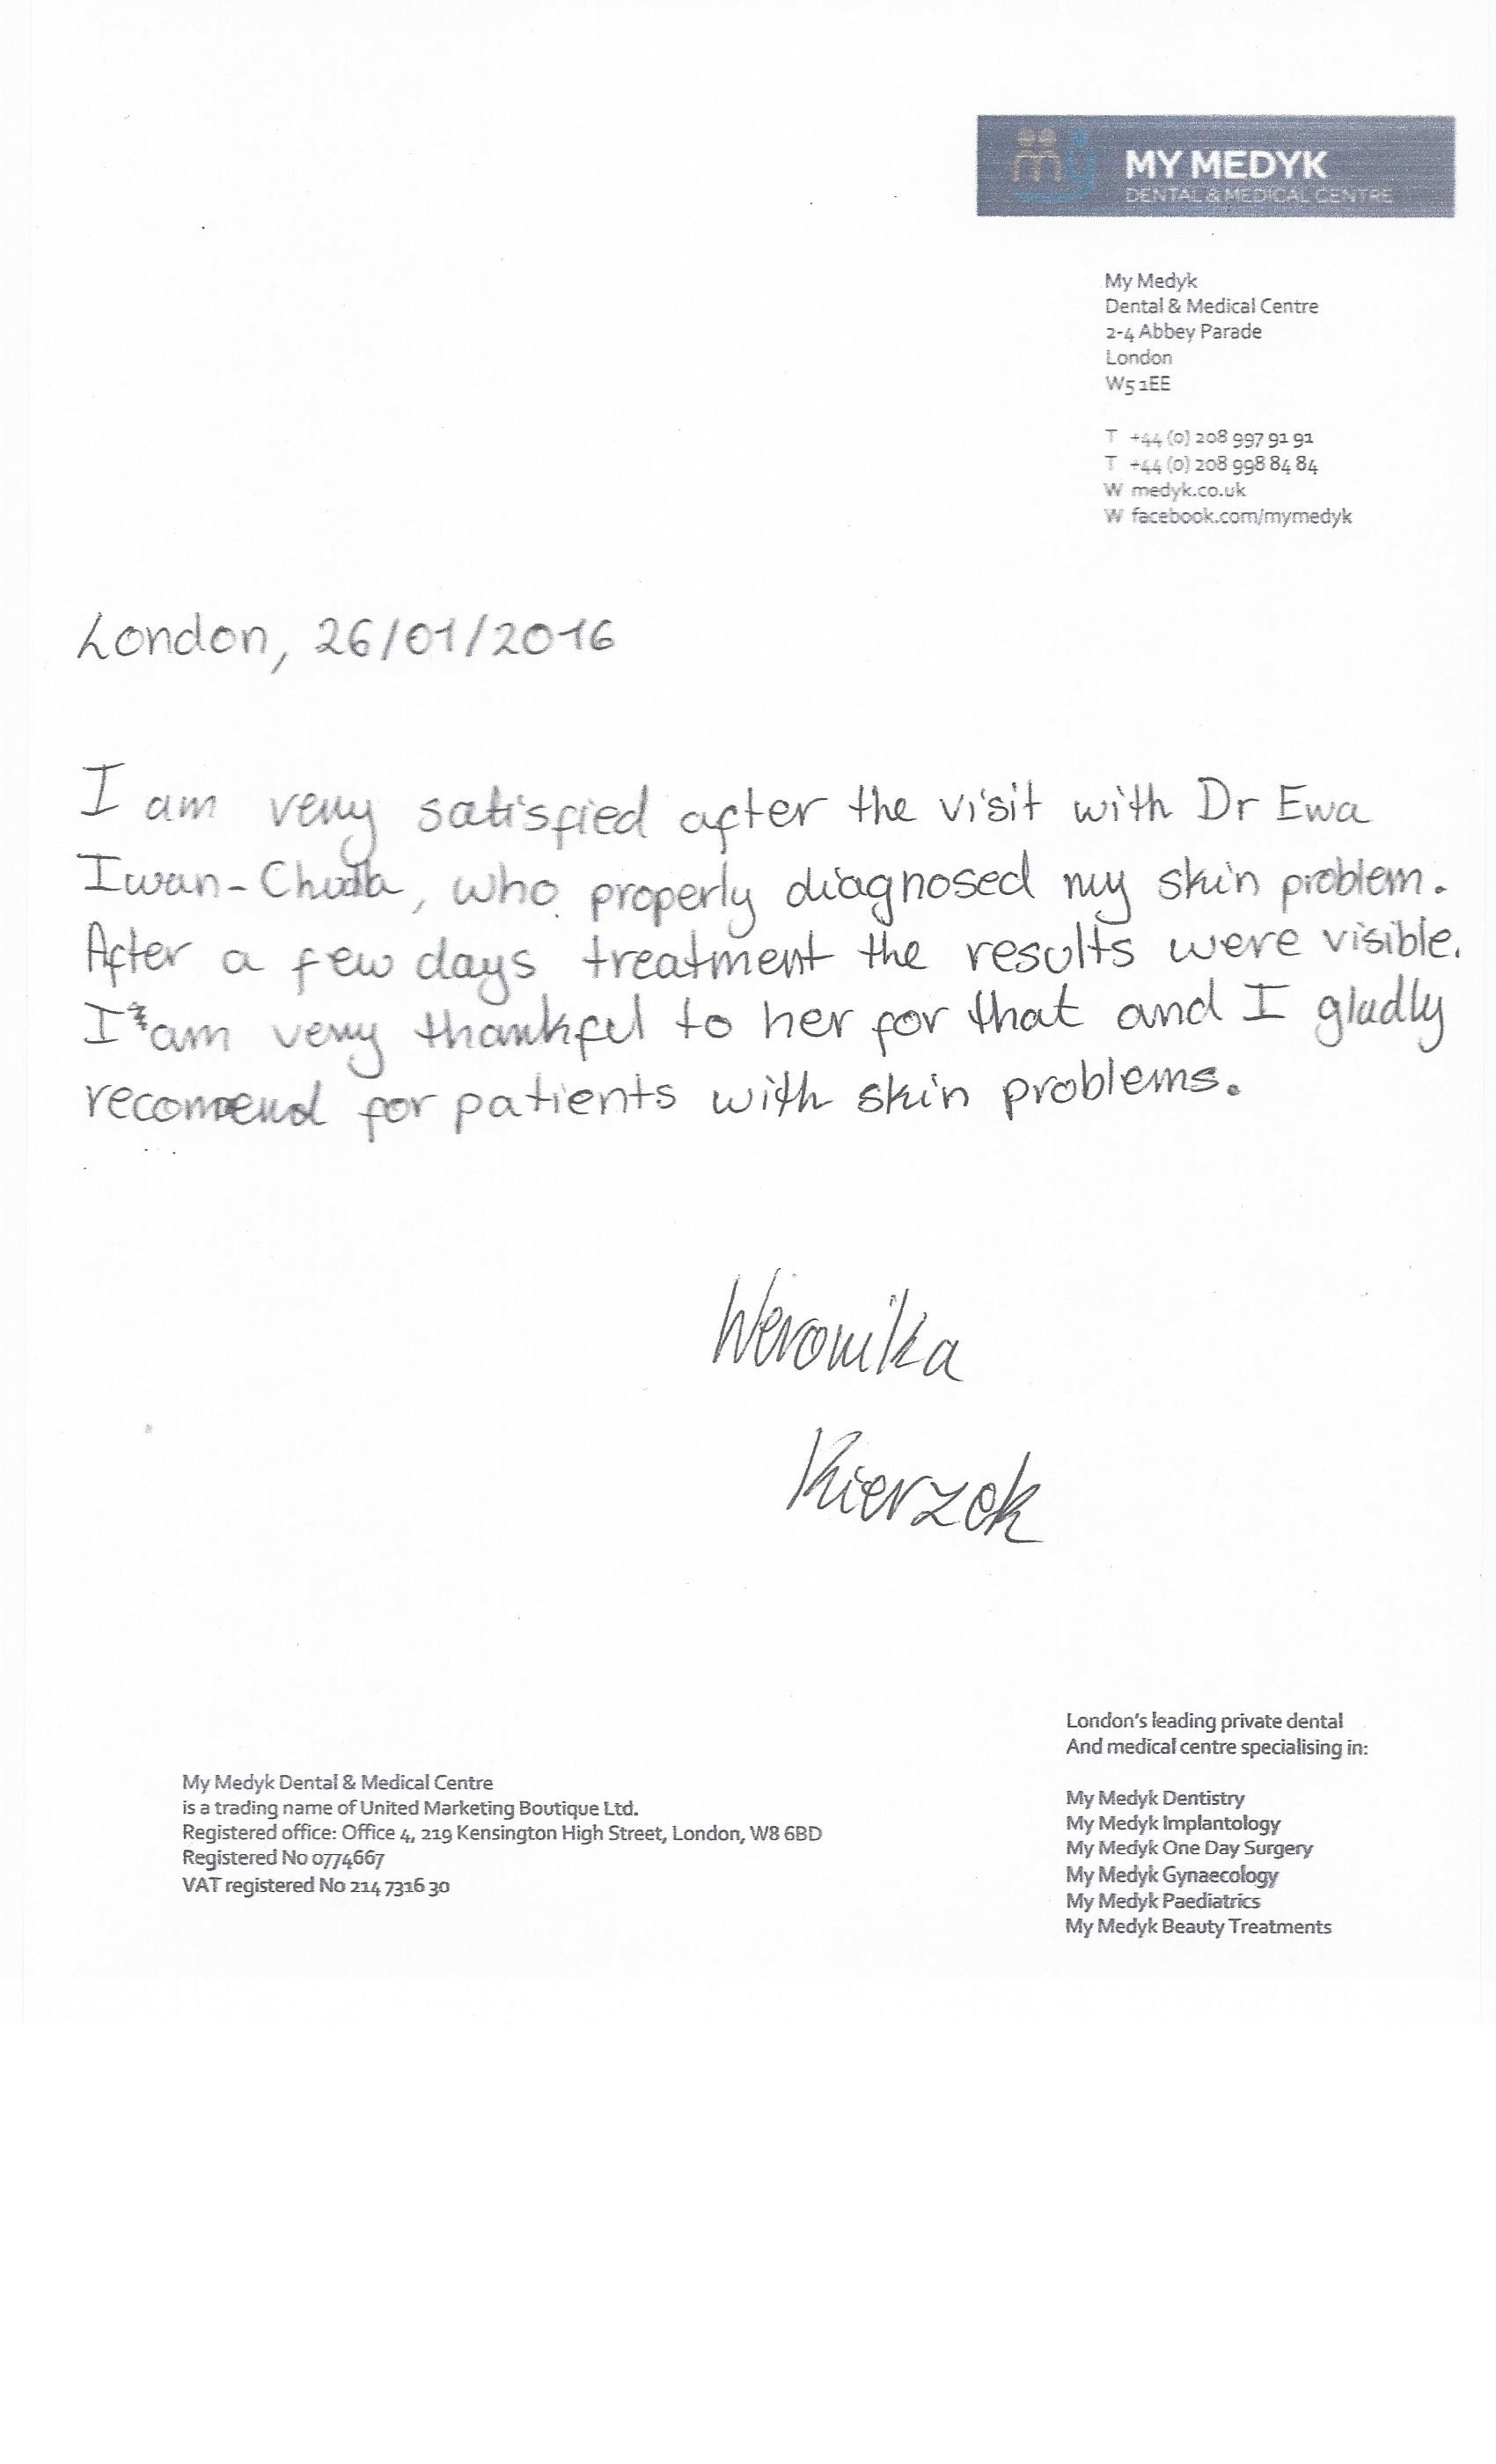 MY MEDYK
DENTAL & MEDICAL CENTRE
My Medyk
Dental & Medical Centre
2-4 Abbey Parade
London
W5 1EE
T +44 (0) 208 997 91 91
T +44 (0) 208 998 84 84
W medyk.co.uk
W facebook.com/mymedyk
London, 26/01/2016
I am very satisfied after the visit with Dr Ewa
Iwan-, who properly diagnosed my skin problem.
After a few days treatment the results were visible.
I am very thankful to her for that and I gladly
recomend for patients with skin problems.
Weronika
Kierzek
London's leading private dental
And medical centre specialising in:
My Medyk Dental & Medical Centre
is a trading name of United Marketing Boutique Ltd.
Registered office: Office 4, 219 Kensington High Street, London, W8 6BD
Registered No 0774667
VAT registered No 214 7316 30
My Medyk Dentistry
My Medyk Implantology
My Medyk One Day Surgery
My Medyk Gynaecology
My Medyk Paediatrics
My Medyk Beauty Treatments